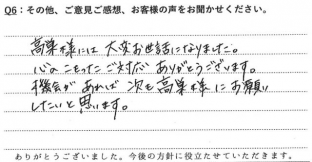 Q6：その他、ご意見ご感想、お客様の声をお聞かせください。
高巣様には大変お世話になりました。
心のこもったご対応ありがとうございます。
機会があれば次も高巣様にお願い
したいと思います。
ありがとうございました。今後の方針に役立たせていただきます。